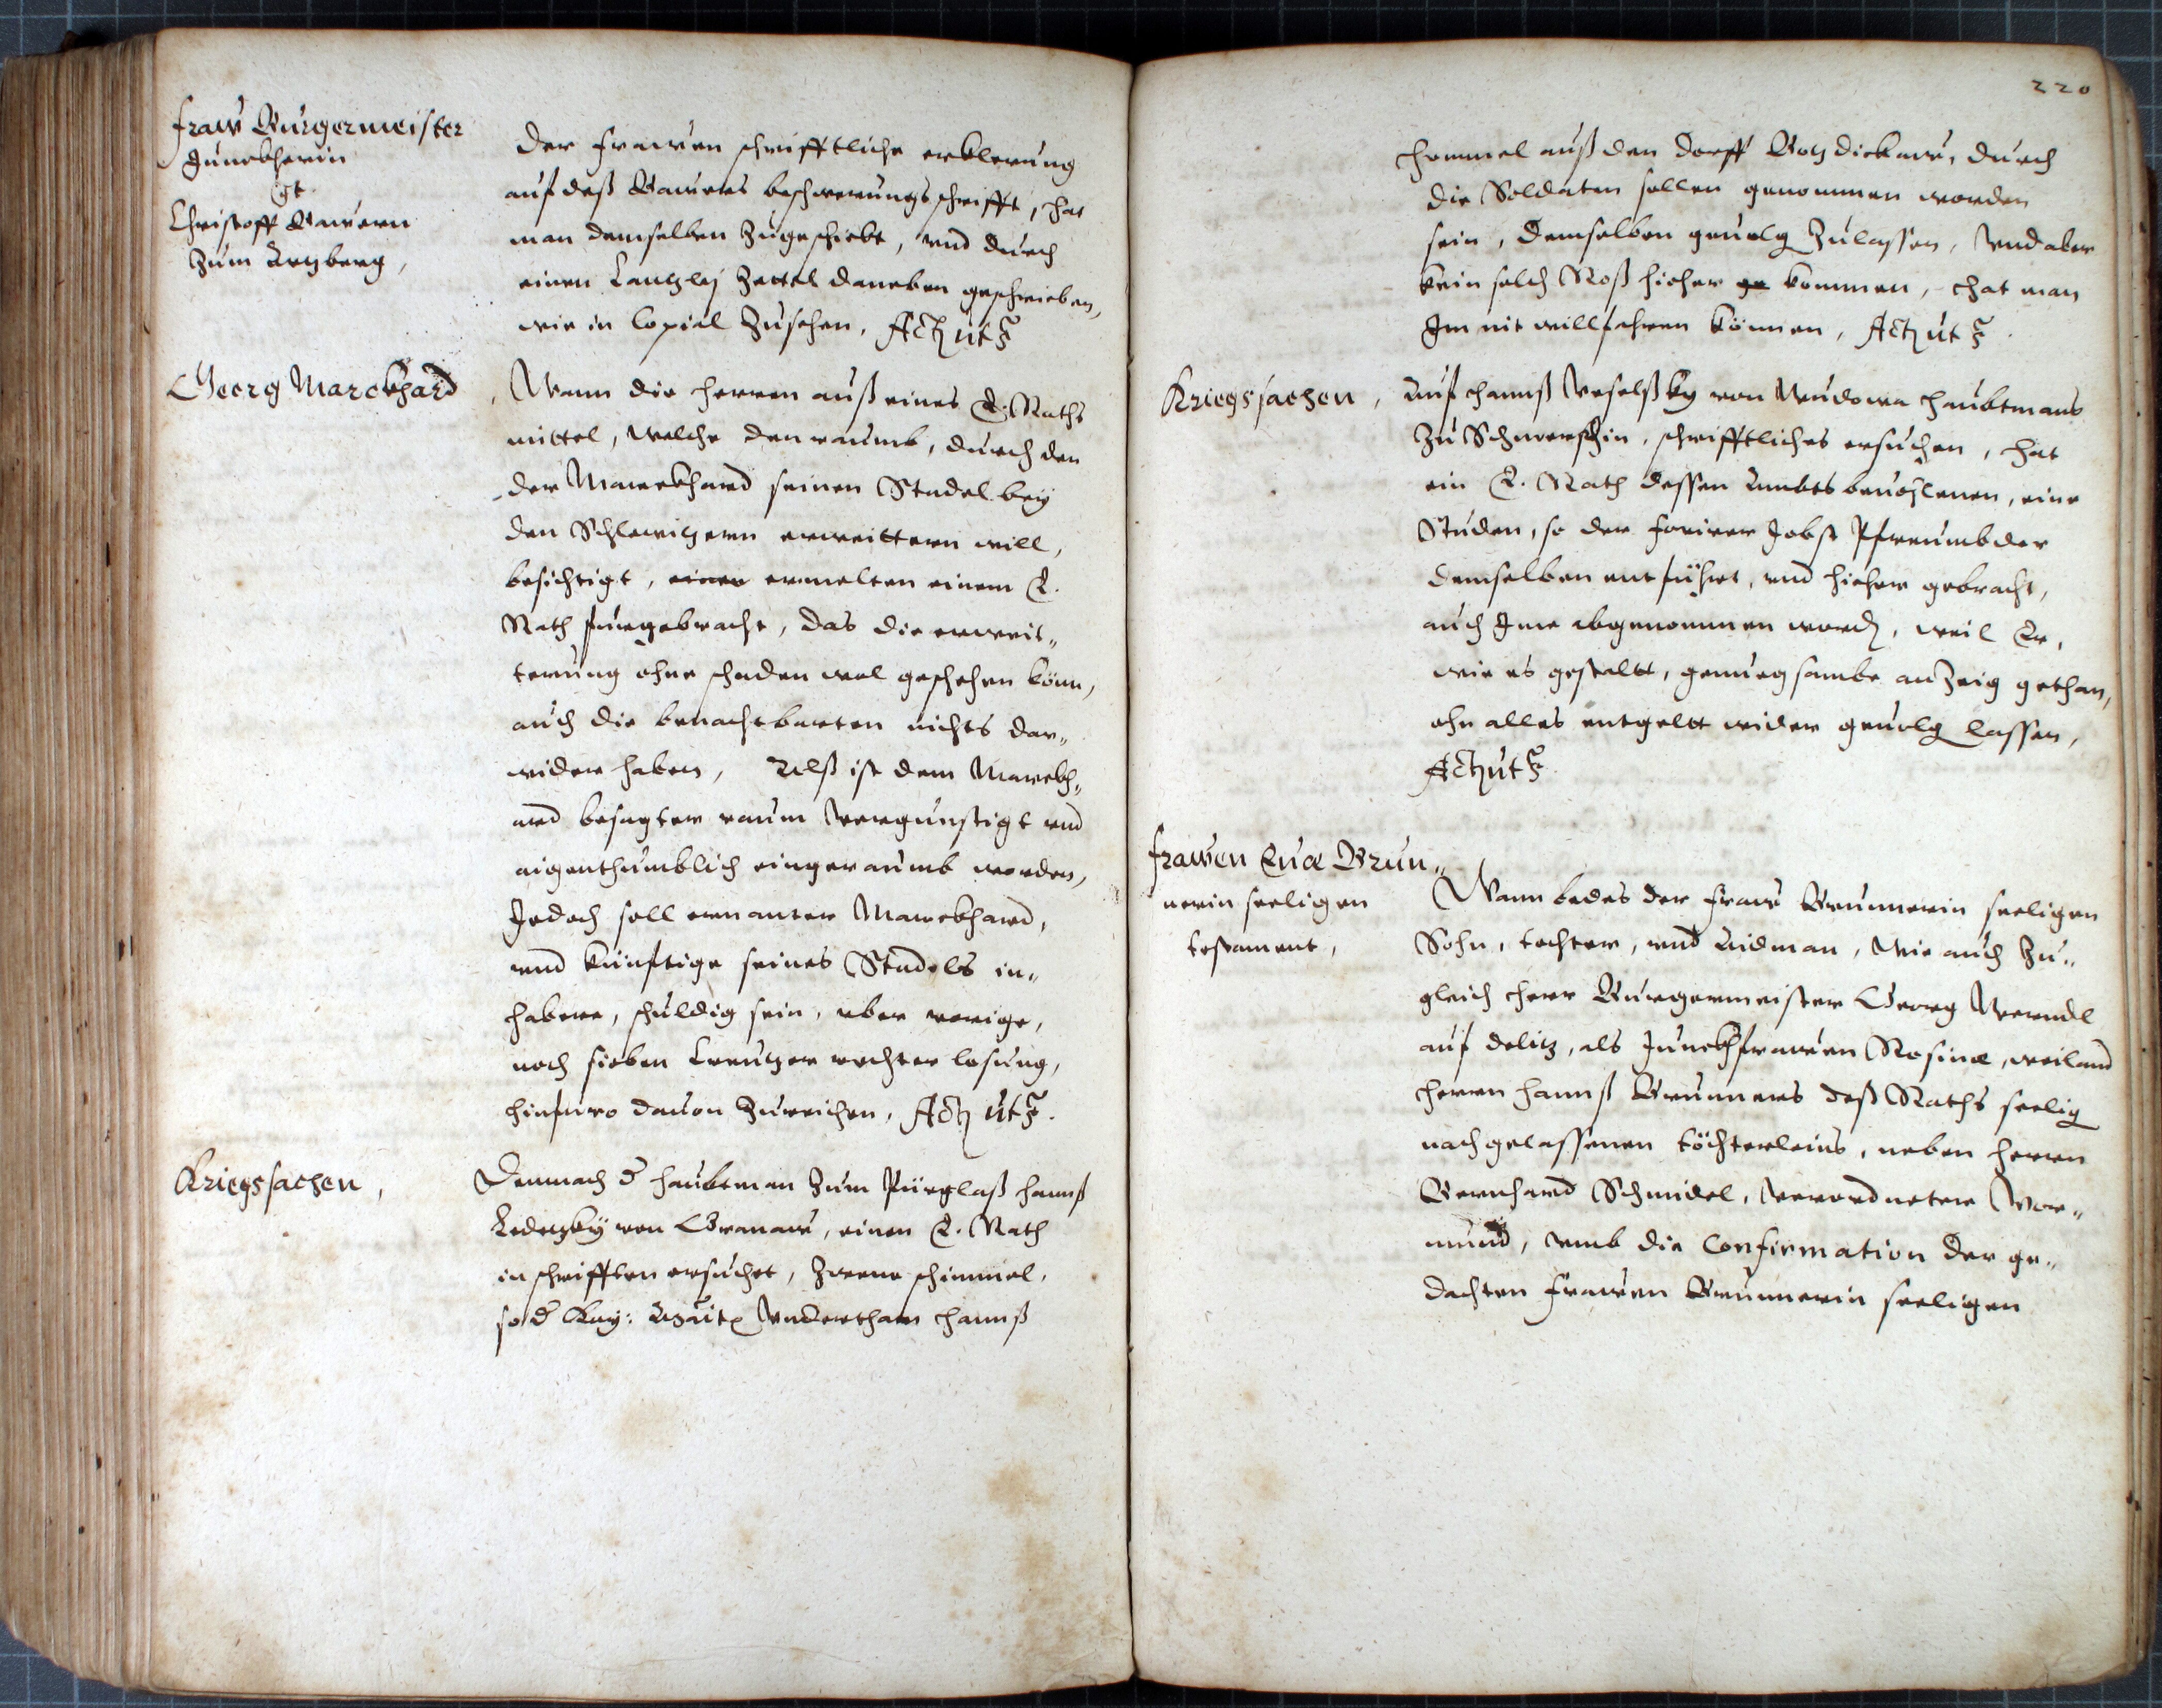 Fraw Burgermeister
Junckherin
gt
Christoff Bawern
zum Artzberg,
Der Frawen schrifftliche erklerung
auf deß Bawers beschwerungs schrifft, hat
man demselben zugeschickt, und durch
einen Cantzley Zettel daneben geschrieben,
wie in Copial zusehen, Actz ut s
Georg Marckhard
Wann die herren auß eines E. Raths
mittel, welche den raumb, durch den
der Marckhard seinen Stadel bey
den Schlewitzern erweittern will,
besichtigt, einer ermelten einem E.
Rath furgebracht, das die erweit„
terung ohne schaden wol geschehen könn,
auch die benachtbarten nichts dar„
wider haben, Alß ist dem Marckh„
ard besagter raum vergunstigt und
aigenthumblich eingeraumb worden,
Jedoch soll ernanter Marckhard,
und künftige seines Stadels in„
habere, schuldig sein, uber vorige,
noch sieben Creutzer rechter losung,
hinfuro dauon zureichen, Actz ut s.
Kriegssachen,
Demnach d haubtman zum Pürglaß hannß
Ledetzky von Granaw, einen E. Rath
in schrifften ersuchet, zweene schimmel,
so d Kay: Maitt Underthan hannß
220
hommel auß den dorff Botzdickaw, durch
die Soldaten sollen genommen worden
sein, demselben geuolg zulassen, Und aber
kein solch Roß hieher ge kommen, hat man
Jm nit willfahren können, Actz ut s.
Kriegssachen,
Auf hannß Weselßky von haubtmans
zu schrifftliches ersuchen, hat
ein E. Rath dessen Ambtsbeuohlenen, eine
Studen, so der forirer Jobst Pfreumbder
demselben entführt, und hieher gebracht,
auch Jme abgenommen word, weil Er,
wie es gestalt, genuegsambe anzeig gethan,
ohn alles entgelt wider geuolg lassen,
Actz ut s.
Frawen Euæ Brun„
nerin seeligen
testament,
Wann bedes der Fraw Brunnerin seeligen
Sohn, tochter, und Aidman, Wie auch zu„
gleich herr Burgermeister Georg Werndl
auf delitz, als Junckhfrawen Rosinæ, weiland
herrn hannß Brunners deß Raths seelig
nachgelassenen töchterleins, neben herrn
Bernhard Schmidel, verordneter Vor„
mund, umb die Confirmation der ge„
dachten Frawen Brunnerin seeligen